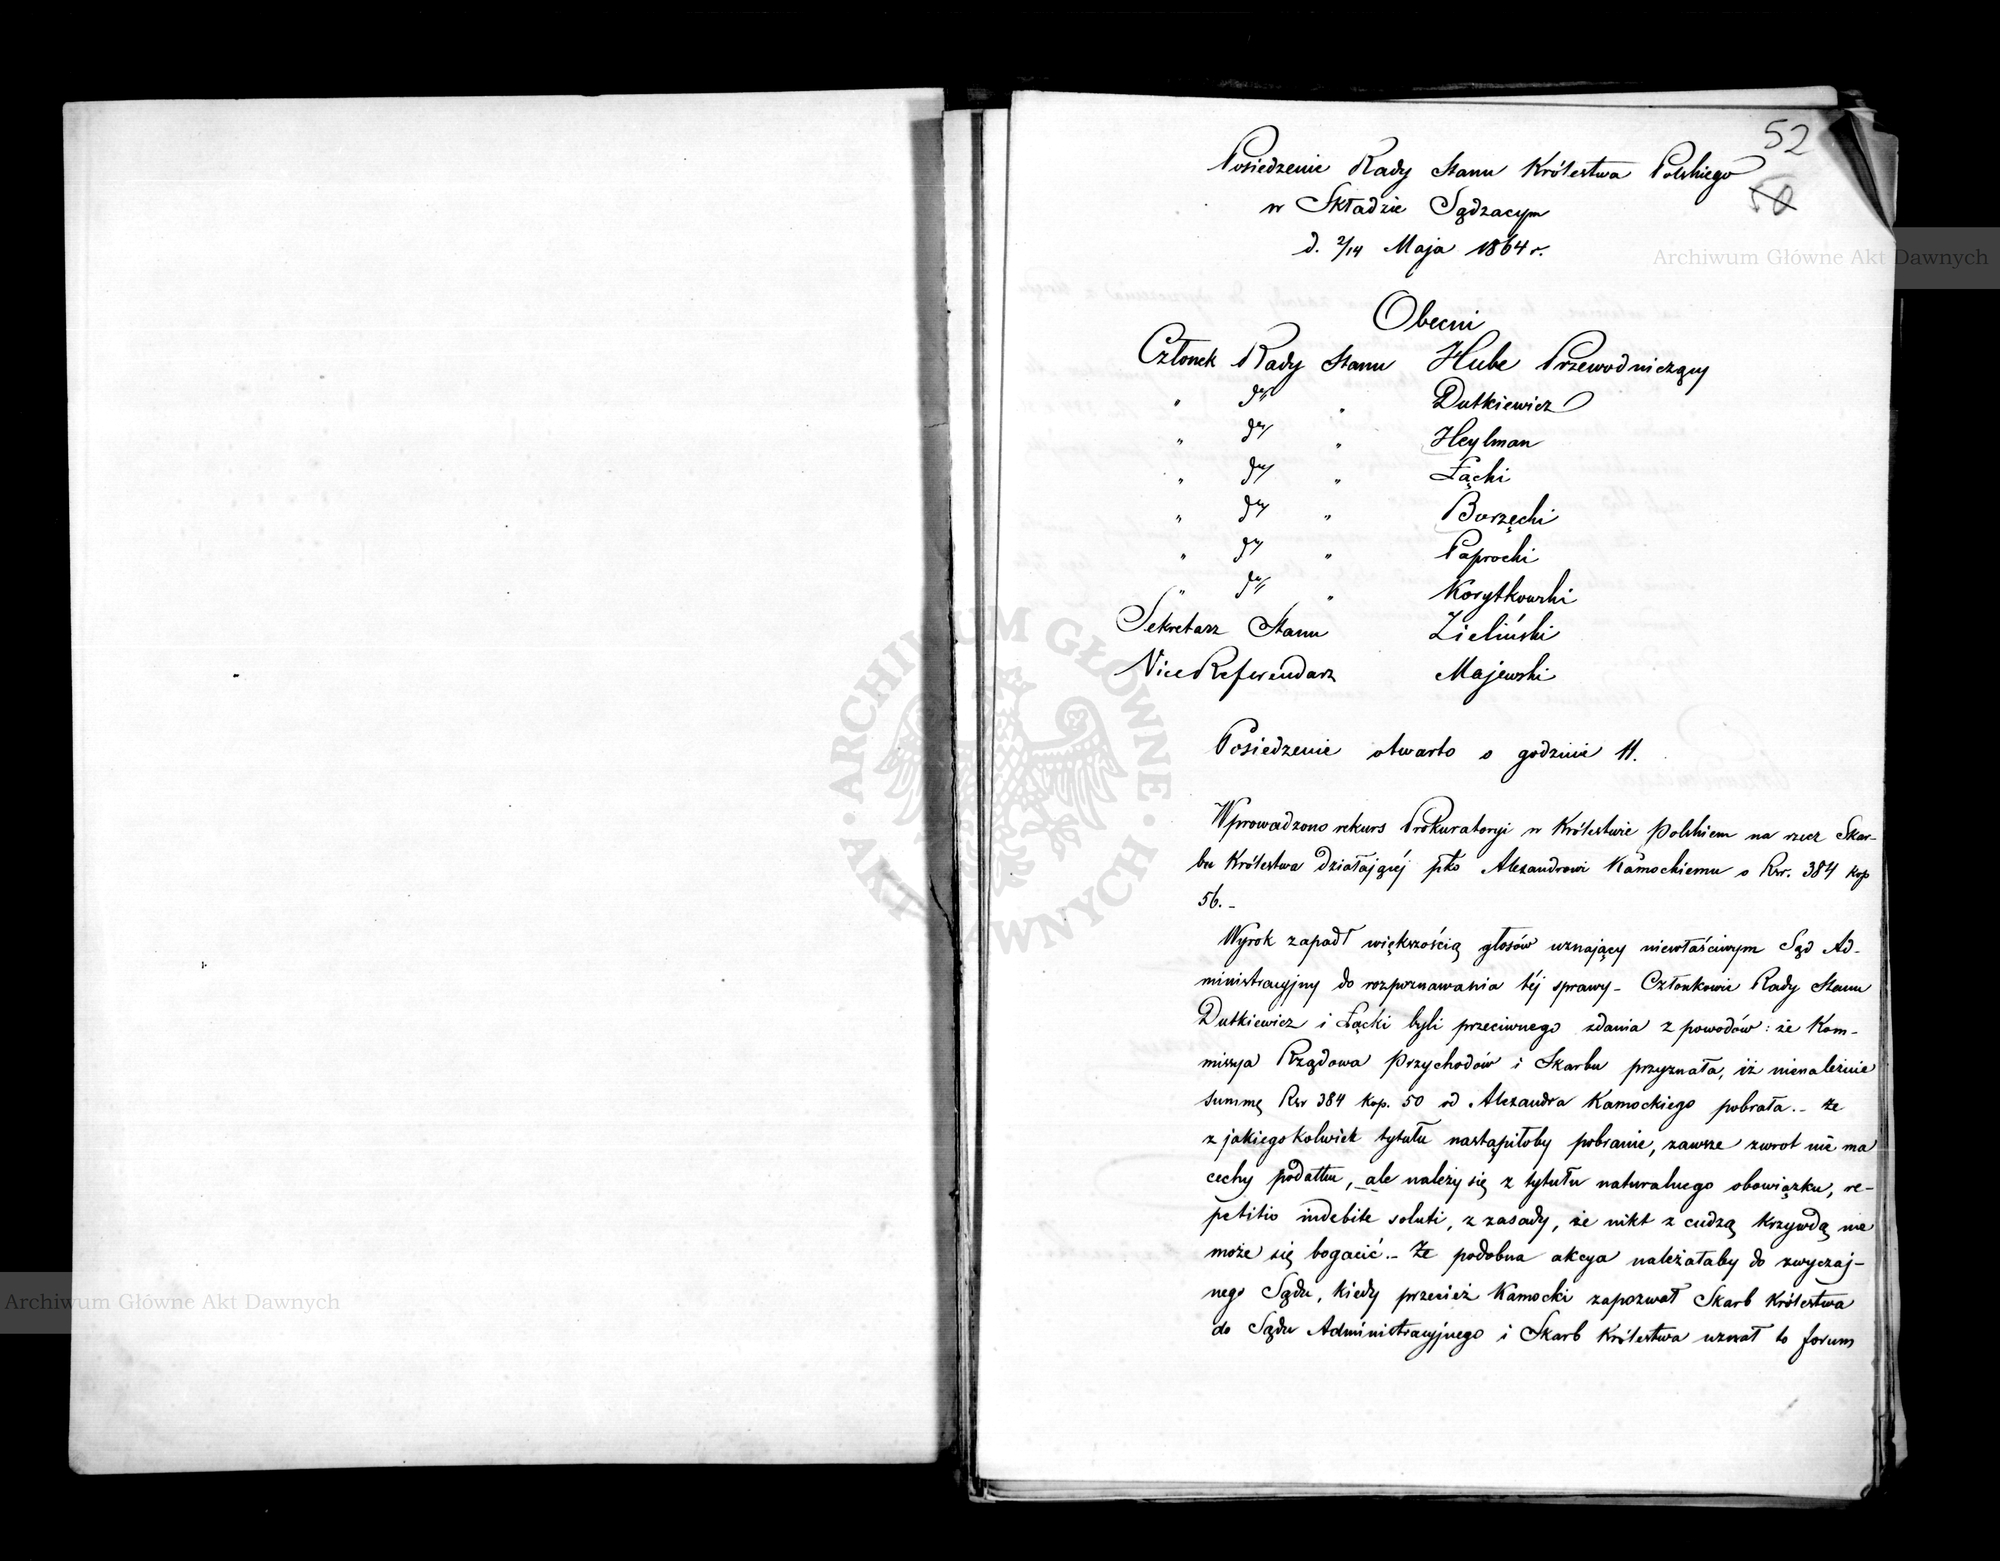 52
50
Posiedzenie Rady Stanu Królestwa Polskiego
w Składzie Sądzacym
d. 2/14 Maja 1864 r.
Obecni
Członek Rady Stanu Hube Przewodniczący
" " Dutkiewicz
" " Heylman
" " Łącki
" " Borzęcki
" " Paprocki
" " Korytkowski
Sekretarz Stanu Zieliński
Vice Referendarz Majewski
Posiedzenie otwarto o godzinie 11.
Wprowadzono rekurs Prokuratoryi w Królestwie Polskiem na rzecz Skar-
bu Królestwa działającéj pko Alexandrowi Kamockiemu o Rsr. 384 kop
56. –
Wyrok zapadł większością głosów uznający niewłaściwym Sąd Ad-
ministracyjny do rozpoznawania téj sprawy – Członkowie Rady Stanu
Dutkiewicz i Łącki byli przeciwnego zdania z powodów: że Kom-
missya Rządowa Przychodów i Skarbu przyznała, iż nienależnie
summę Rsr 384 kop. 50 od Alexandra Kamockiego pobrała. – że
z jakiegokolwiek tytułu nastąpiłoby pobranie, zawsze zwrot nie ma
cechy podatku, ale należy się z tytułu naturalnego obowiązku, re-
petitio indebite soluti, z zasady, że nikt z cudzą krzywdą nie
może się bogacić. – Że podobna akcya należałaby do zwyczaj-
nego Sądu, kiedy przecież Kamocki zapozwał Skarb Królestwa
do Sądu Administracyjnego i Skarb Królestwa uznał to forum
Archiwum Główne Akt Dawnych
Archiwum Główne Akt Dawnych
ARCHIWUM GŁÓWNE AKT DAWNYCH